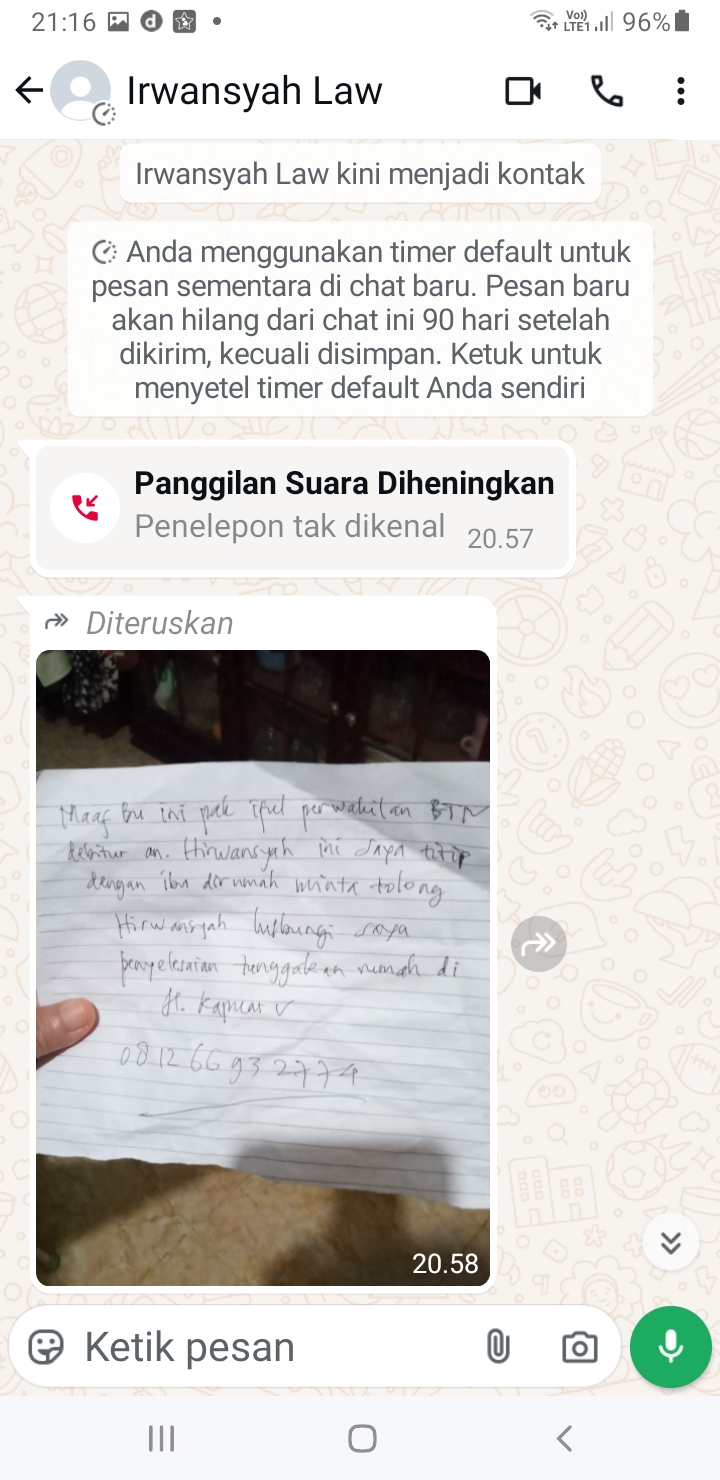 21:16
Vo))
LTE1
96%
Irwansyah Law
Irwansyah Law kini menjadi kontak
Anda menggunakan timer default untuk
pesan sementara di chat baru. Pesan baru
akan hilang dari chat ini 90 hari setelah
dikirim, kecuali disimpan. Ketuk untuk
menyetel timer default Anda sendiri
Panggilan Suara Diheningkan
Penelepon tak dikenal 20.57
Diteruskan
Maaf bu ini pak iful perwakilan BTN
debitur an. Hirwansyah ini saya titip
dengan ibu dirumah minta tolong
Hirwansyah hubungi saya
penyelesaian tunggakan rumah di
Jl. Kapuas V
0812 6693 2774
20.58
Ketik pesan